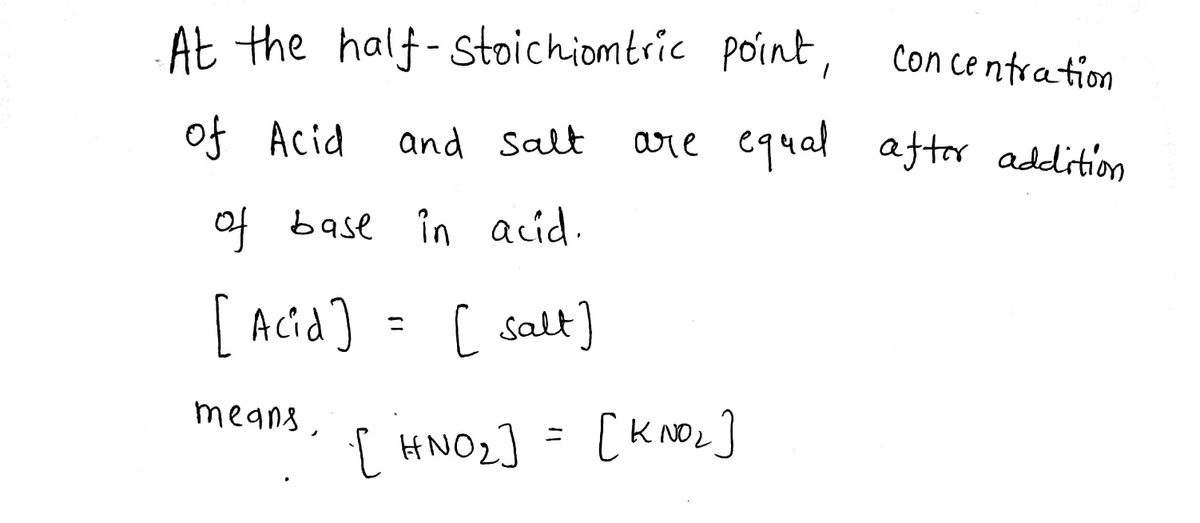 At the half-Stoichiomtric point, concentration
of Acid and salt are equal after addition
of base in acid.
[Acid] = [salt]
means, [HNO₂] = [KNO₂]